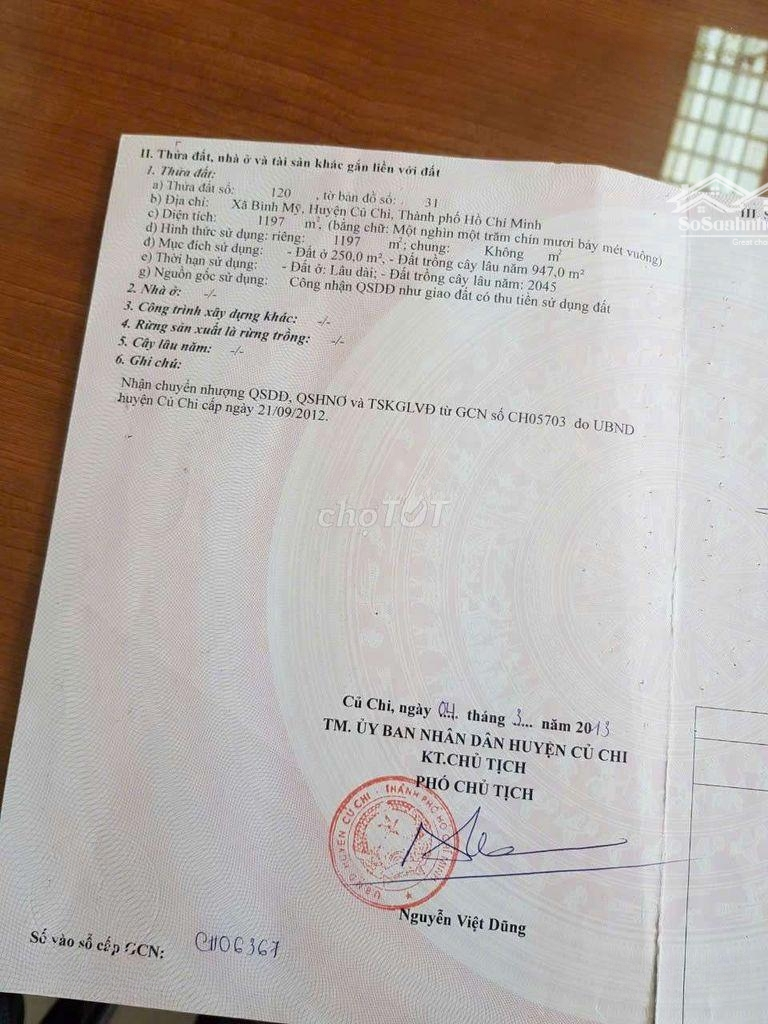 II. Thửa đất, nhà ở và tài sản khác gắn liền với đất
1. Thửa đất:
a) Thửa đất số: 120 , tờ bản đồ số: 31
b) Địa chỉ: Xã Bình Mỹ, Huyện Củ Chi, Thành phố Hồ Chí Minh
c) Diện tích: 1197 m², (bằng chữ: Một nghìn một trăm chín mươi bảy mét vuông)
d) Hình thức sử dụng: riêng: 1197 m²; chung: Không m²
đ) Mục đích sử dụng: - Đất ở 250,0 m², - Đất trồng cây lâu năm 947,0 m²
e) Thời hạn sử dụng: - Đất ở: Lâu dài; - Đất trồng cây lâu năm: 2045
g) Nguồn gốc sử dụng: Công nhận QSDĐ như giao đất có thu tiền sử dụng đất
2. Nhà ở: -/-
3. Công trình xây dựng khác: -/-
4. Rừng sản xuất là rừng trồng: -/-
5. Cây lâu năm: -/-
6. Ghi chú:
Nhận chuyển nhượng QSDĐ, QSHNƠ và TSKGLVĐ từ GCN số CH05703 do UBND
huyện Củ Chi cấp ngày 21/09/2012.
III. S
SoSanhnh
Great cho
chợTỐT
Củ Chi, ngày 04. tháng 3... năm 2013
TM. ỦY BAN NHÂN DÂN HUYỆN CỦ CHI
KT.CHỦ TỊCH
PHÓ CHỦ TỊCH
UBND HUYỆN CỦ CHI - THÀNH PHỐ HỒ CHÍ MINH
Nguyễn Việt Dũng
Số vào sổ cấp GCN: CH06367